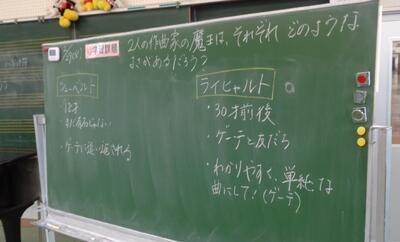 学習課題
2人の作曲家の魔王は、それぞれ どのような
よさがあるだろう?
シューベルト
・18才
・ゲーテに送り返される
ライヒャルト
・30才前後
・ゲーテと友だち
・わかりやすく、単純な
曲にして!(ゲーテ)